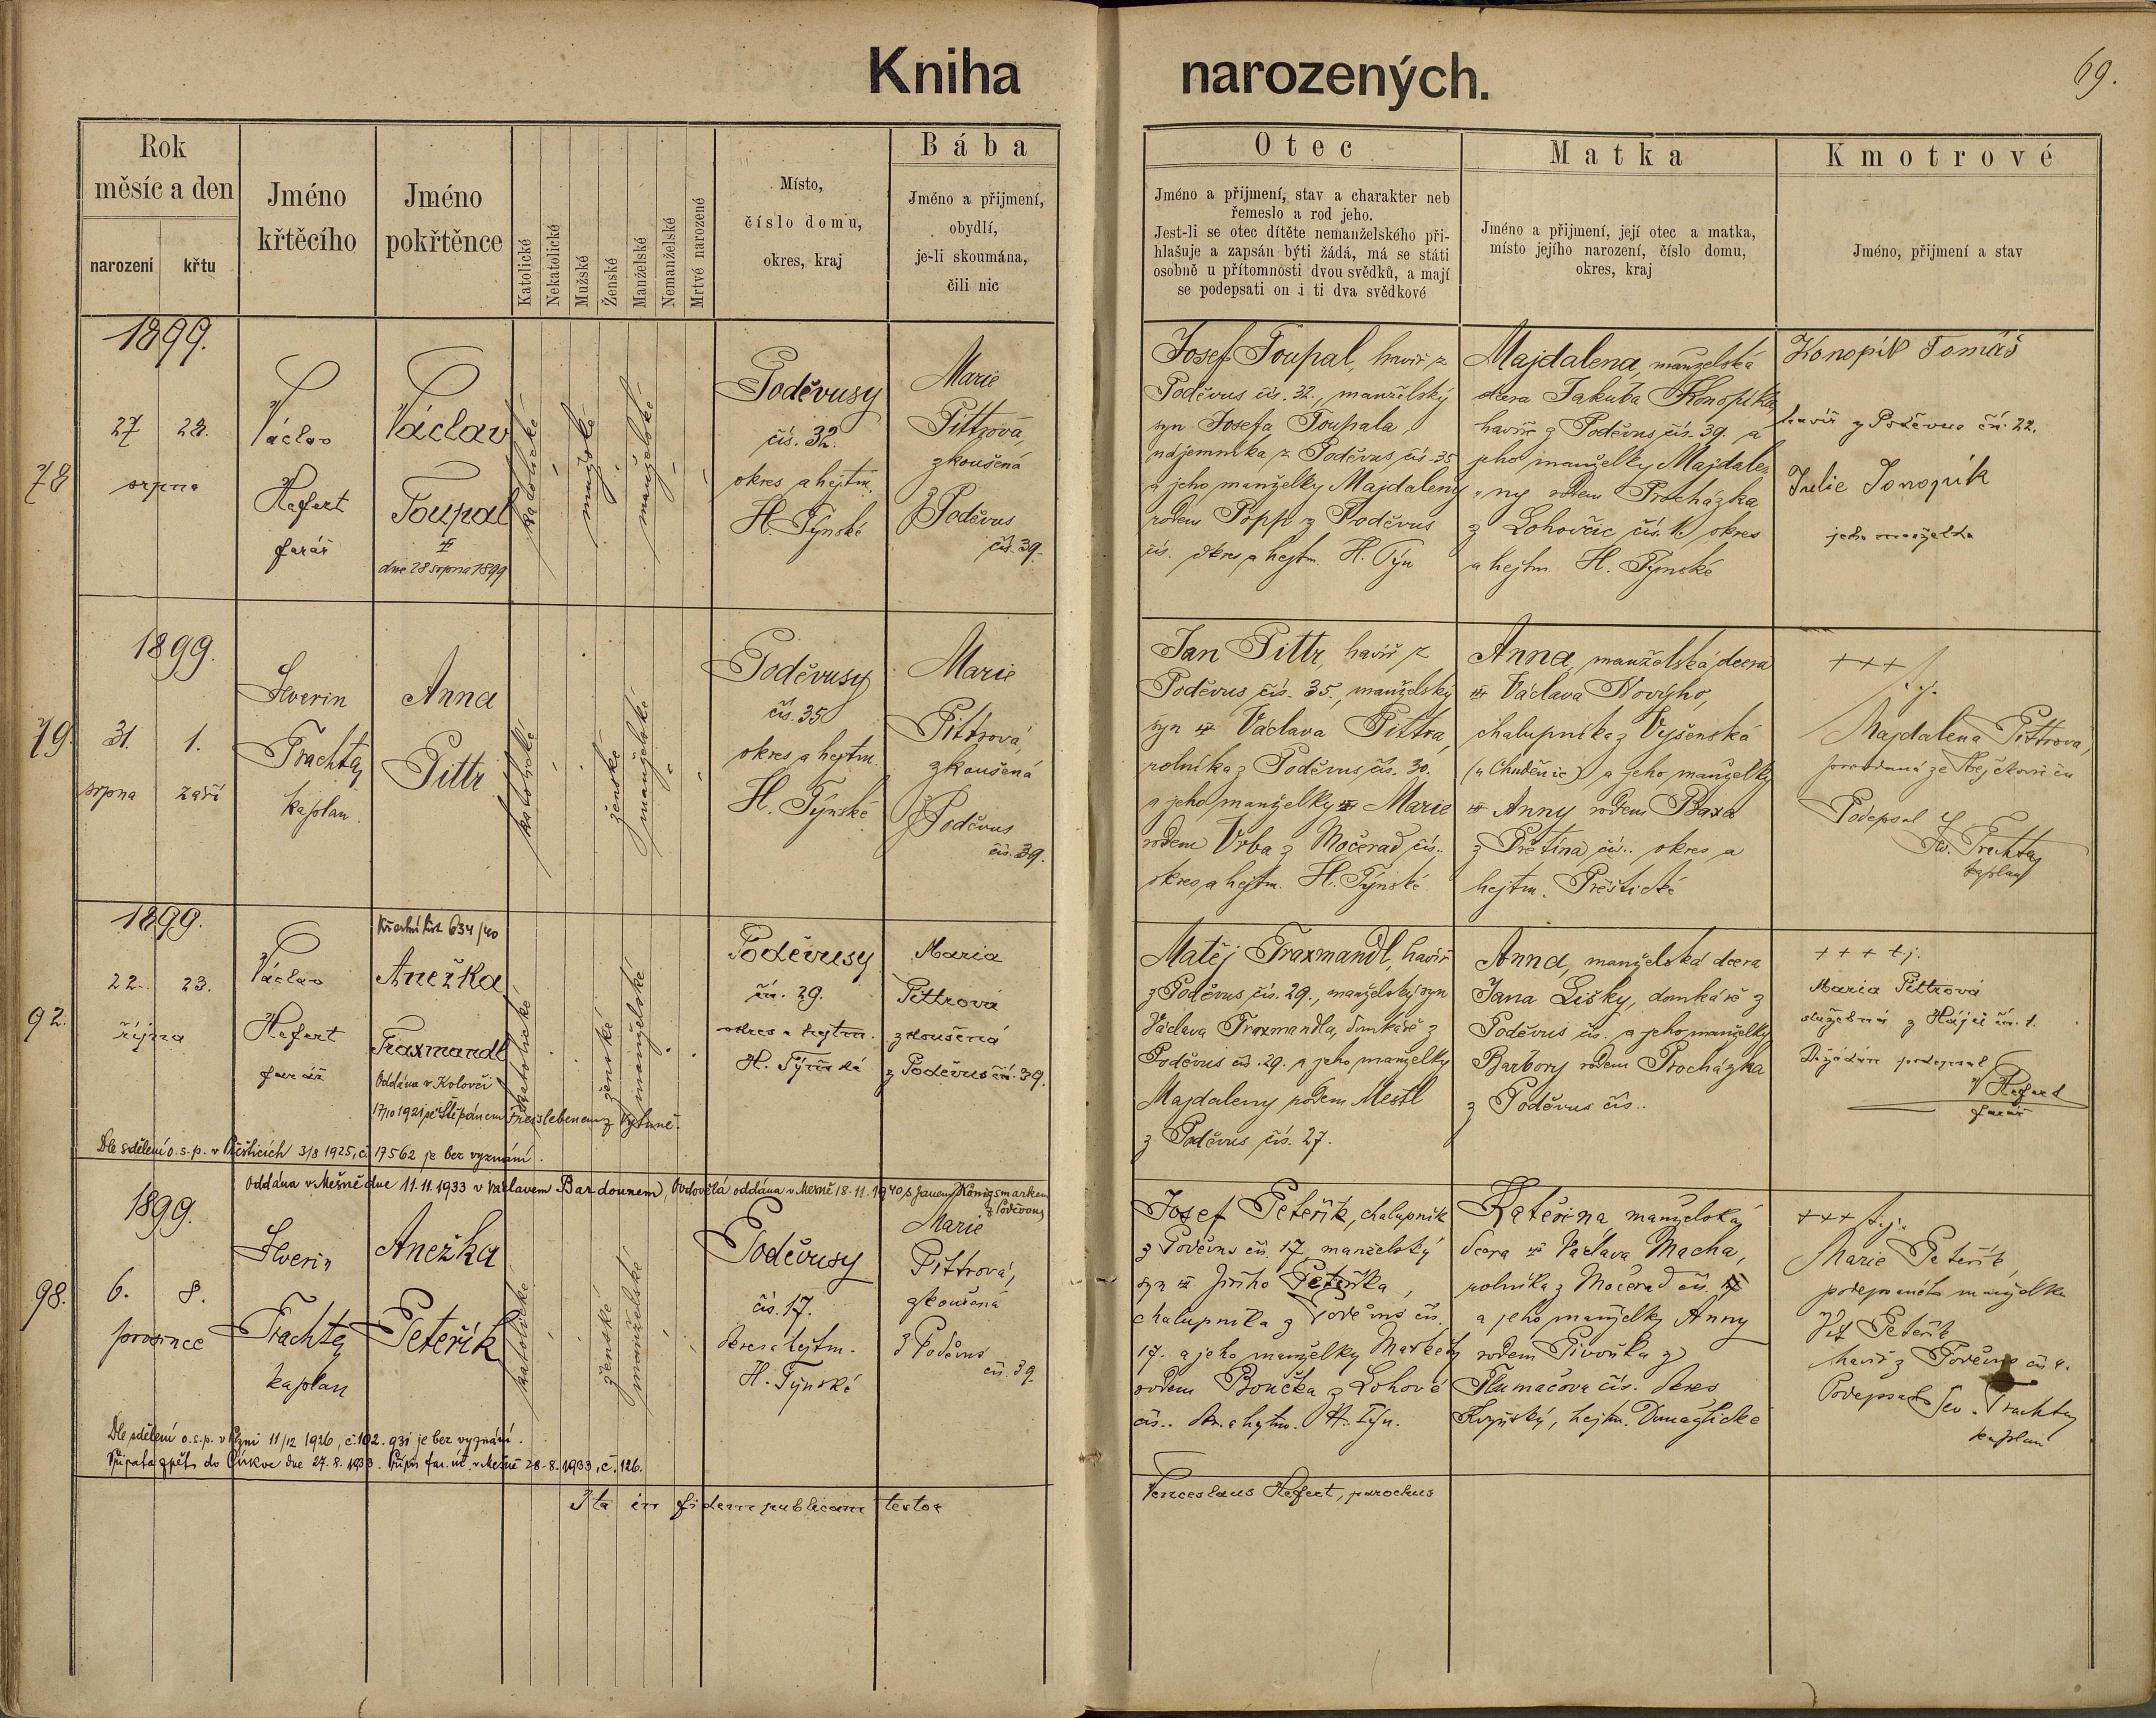 Kniha narozených.
69.
Rok
měsíc a den
narození
křtu
Jméno
křtěcího
Jméno
pokřtěnce
Katolické
Nekatolické
Mužské
Ženské
Manželské
Nemanželské
Mrtvé narozené
Místo,
číslo domu,
okres, kraj
Bába
Jméno a přijmení,
obydlí,
je-li skoumána,
čili nic
Otec
Jméno a přijmení, stav a charakter neb
řemeslo a rod jeho.
Jest-li se otec dítěte nemanželského při-
hlašuje a zapsán býti žádá, má se státi
osobně u přítomnosti dvou svědků, a mají
se podepsati on i ti dva svědkové
Matka
Jméno a přijmení, její otec a matka,
místo jejího narození, číslo domu,
okres, kraj
Kmotrové
Jméno, přijmení a stav
78
1899.
27 28.
srpna
Václav
Hefert
farář
Václav
Toupal
dne 28 srpna 1899
katolické
mužské
manželské
Poděvusy
čís. 32.
okres a hejtm.
H. Týnské
Marie
Pittrová,
zkoušená
z Poděvus
čís. 39.
Josef Toupal, havíř z
Poděvus čís. 32., manželský
syn Josefa Toupala
nájemníka z Poděvus čís. 35
a jeho manželky Majdaleny
rodem Popp z Poděvus
čís. okres a hejtm. H. Týn
Majdalena, manželská
dcera Jakuba Konopíka,
havíře z Poděvus čís. 39. a
jeho manželky Majdale-
ny rodem Procházka
z Lohovčic čís. 1. okres
a hejtm. H. Týnské
Konopík Tomáš
havíř z Poděvus čís. 22.
Julie Konopík
jeho manželka
79.
1899.
31. 1.
srpna září
Severin
Trachta,
kaplan.
Anna
Pittr
katolické
ženské
manželské
Poděvusy
čís. 35
okres a hejtm.
H. Týnské
Marie
Pittrová,
zkoušená
z Poděvus
čís. 39.
Jan Pittr, havíř z
Poděvus čís. 35., manželský
syn Václava Pittra,
rolníka z Poděvus čís. 30.
a jeho manželky Marie
rodem Vrba z Močerad čís..
okres a hejtm. H. Týnské
Anna, manželská dcera
Václava Nového,
chalupníka z Vyšenská
(u Chuděnic) a jeho manželky
Anny rodem Baxa
z Přetína čís.. okres a
hejtm. Přeštické
+++ t.j.
Majdalena Pittrová,
Podepsal
Sev. Trachta
kaplan
92.
1899.
22. 23.
října
Václav
Hefert
farář
Křestní list 634/40
Anežka
Traxmandl
Oddána v Kolovči
17/10 1921 se Štěpánem Freislebenem z Vytuně.
Dle sdělení o.s.p. v Přešticích 3/8 1925, č. 17562 je bez vyznání.
katolické
ženské
manželské
Poděvusy
čís. 29.
okres a hejtm.
H. Týnské
Maria
Pittrová
zkoušená
z Poděvus čís. 39.
Matěj Traxmandl, havíř
z Poděvus čís. 29., manželský syn
Václava Traxmandla, domkáře z
Poděvus čís. 29. a jeho manželky
Majdaleny rodem Mestl
z Poděvus čís. 27.
Anna, manželská dcera
Jana Lišky, domkáře z
Poděvus čís. a jeho manželky
Barbory rodem Procházka
z Poděvus čís..
+ + + t.j.
Maria Pittrová
služebná z Háje čís. 1.
Dožádán podepsal
V. Hefert
farář
98.
Oddána v Mešně dne 11.11.1933 v Václavem Bardounem, Ovdovělá oddána v Mešně 18.11.1940 s Janem Königsmarkem
z Poděvous
1899.
6. 8.
prosince
Severin
Trachta
kaplan
Anežka
Peteřík
katolické
ženské
manželské
Poděvusy
čís. 17.
okres a hejtm.
H. Týnské
Marie
Pittrová,
zkoušená
z Poděvus
čís. 39.
Josef Peteřík, chalupník
z Poděvus čís. 17, manželský
syn Jiřího Peteříka,
chalupníka z Poděvus čís.
17. a jeho manželky Markéty
rodem Boučka z Lohové
čís.. okr. a hejtm. H. Týn.
Kateřina, manželská
dcera Václava Macha,
rolníka z Močerad čís.
a jeho manželky Anny
rodem Pivoňka z
Tlumačova čís. okres
Kdyňský, hejtm. Domažlické
+++ t.j.
Marie Peteřík,
podepsaného manželka
Vít Peteřík
havíř z Poděvus čís 4.
Podepsal Sev. Trachta
kaplan
Dle sdělení o.s.p. v Plzni 11/12 1926, č. 102.931 je bez vyznání.
Přijata zpět do Církve dne 27.8.1933. Přípis far. úř. v Mešně 28.8.1933, č. 126.
Ita in fidem publicam testor
Venceslaus Hefert, parochus